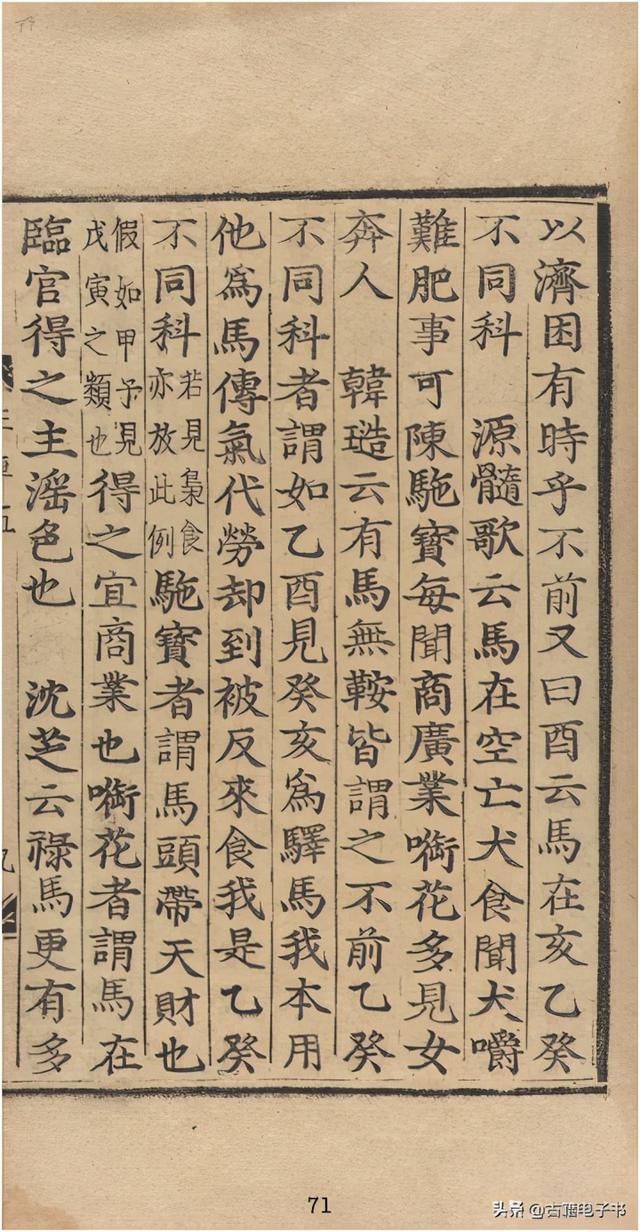 以濟困有時乎不前又曰酉云馬在亥乙癸
不同科　源髓歌云馬在空亡犬食聞犬嚼
難肥事可陳駞寳每聞商廣業㗸花多見女
奔人　韓䂆云有馬無鞍皆謂之不前乙癸
不同科者謂如乙酉見癸亥爲驛馬我本用
他爲馬傳氣代勞却到被反來食我是乙癸
不同科若見梟食亦放此例駞寳者謂馬頭帶天財也
假如甲予見戊寅之類也得之宜商業也㗸花者謂馬在
臨官得之主滛色也　沈芝云祿馬更有多
71
头条 @古籍电子书